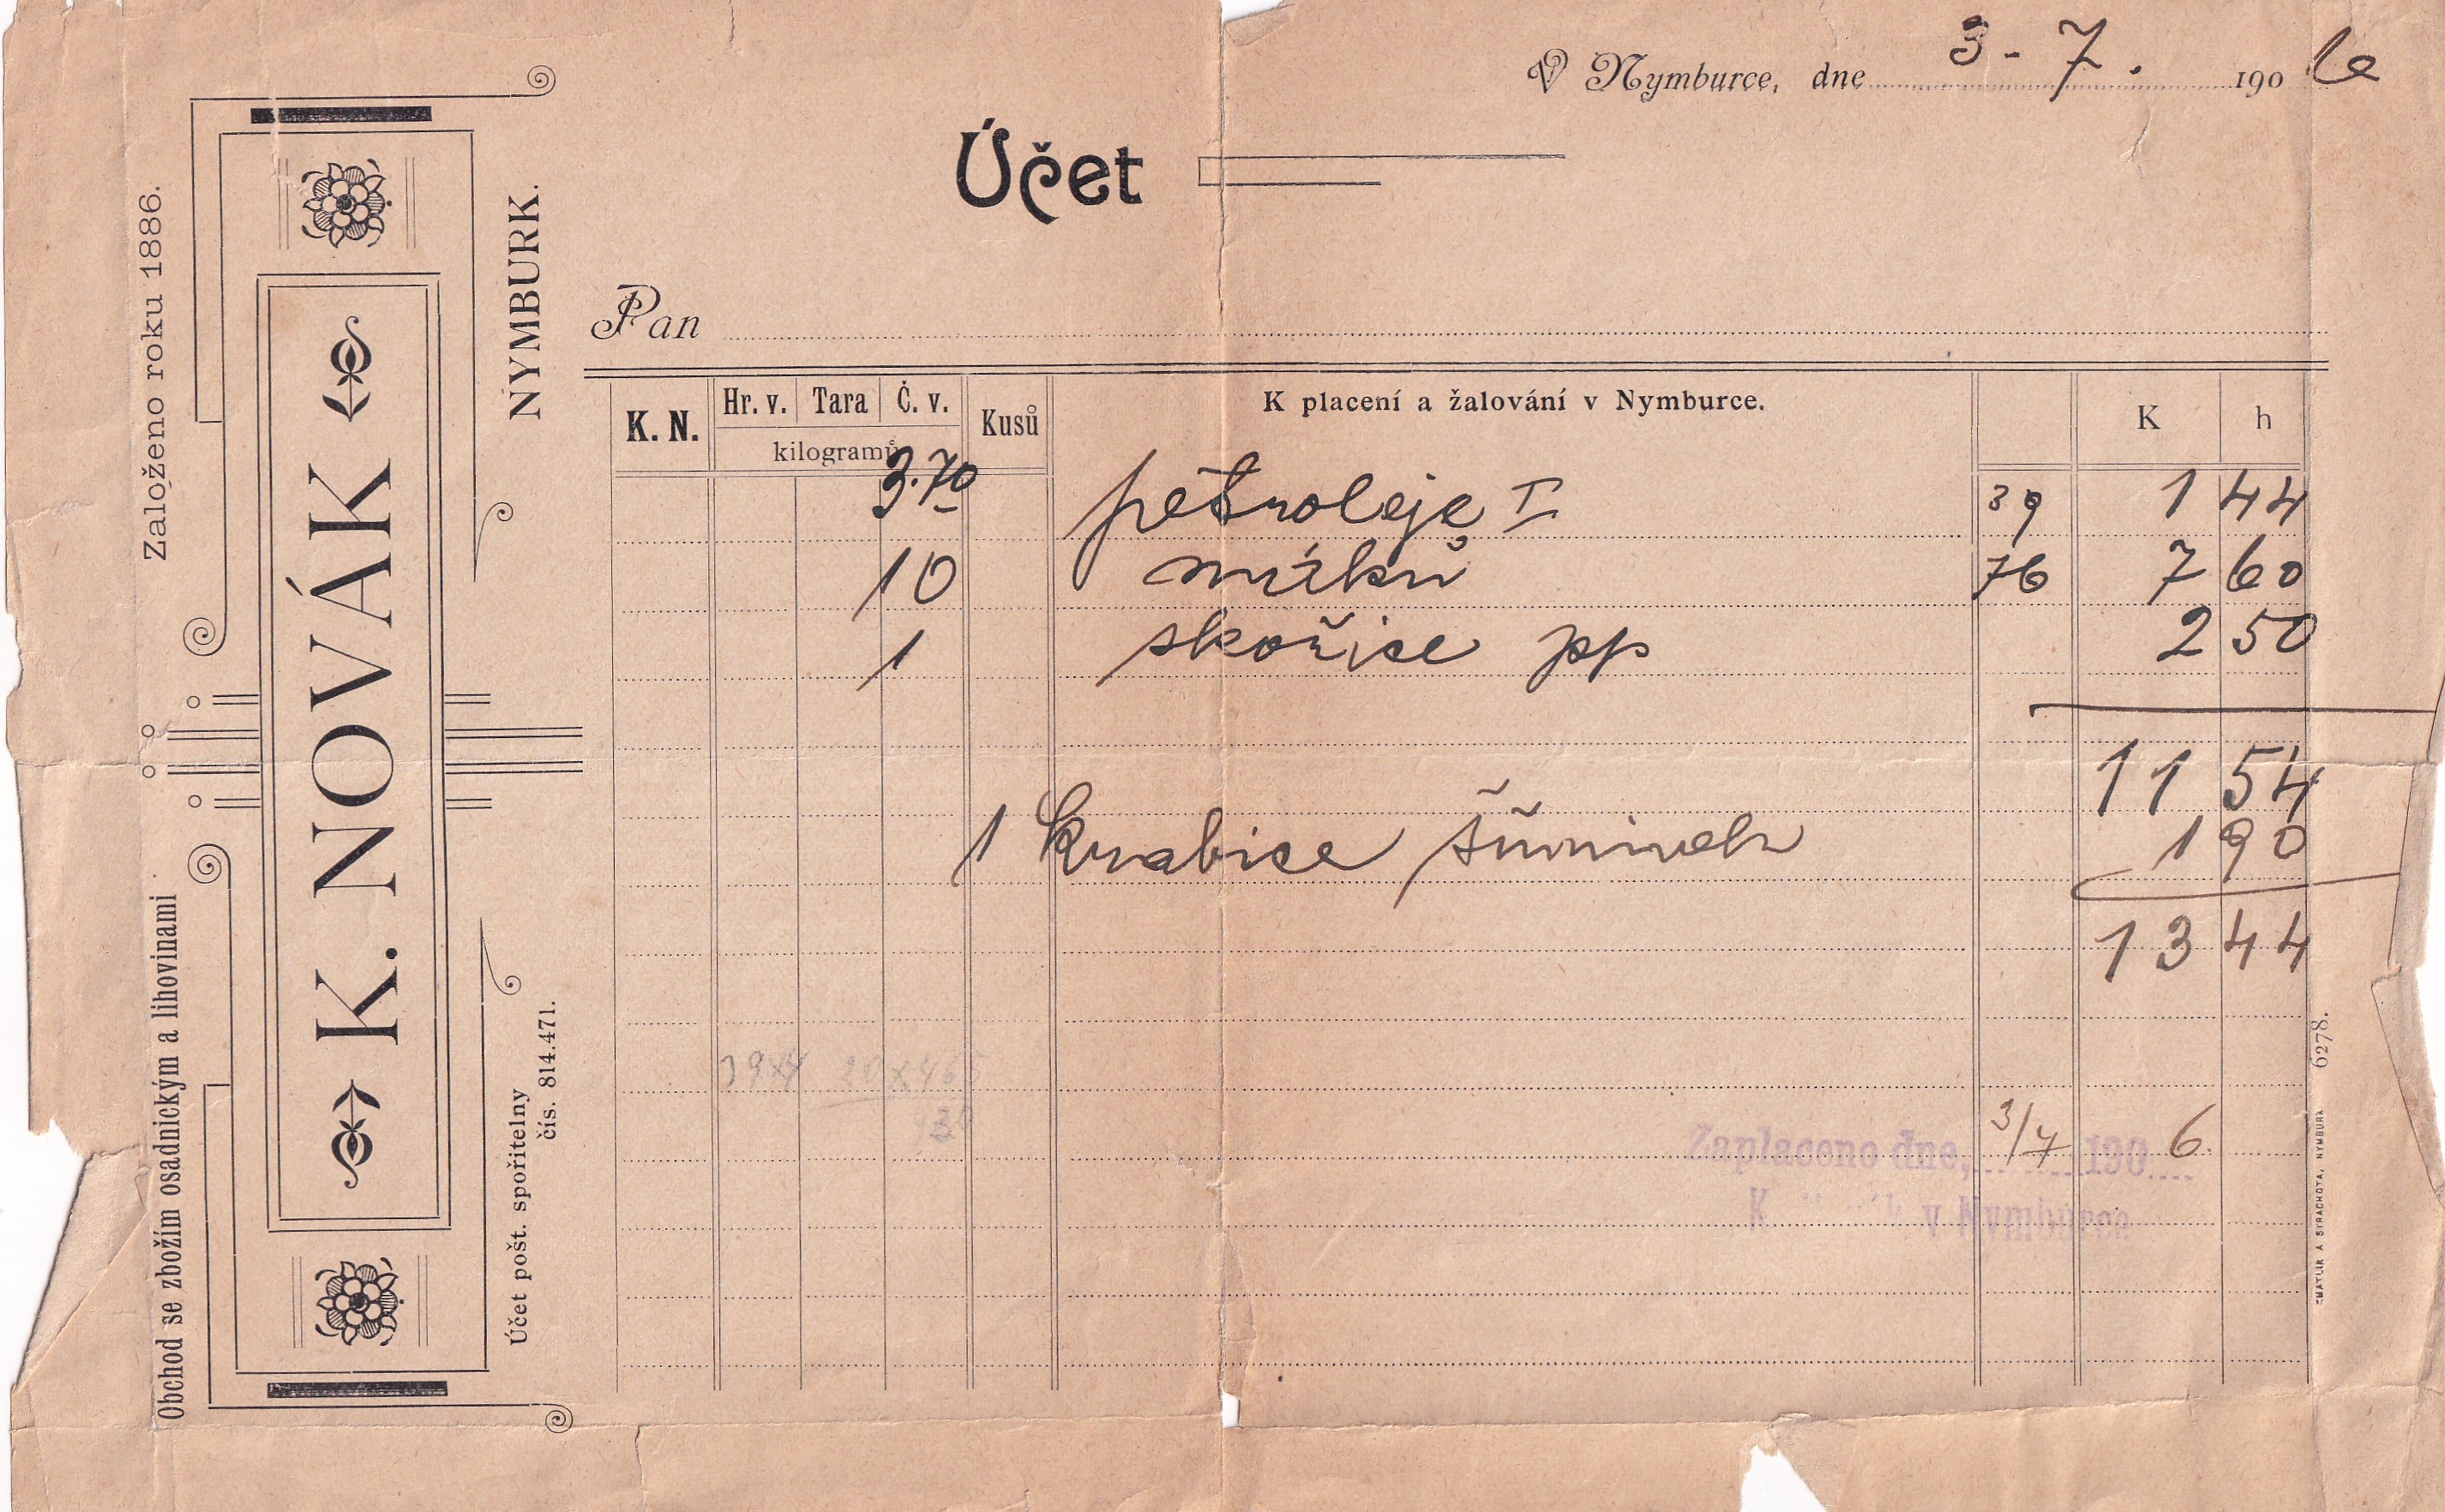 V Nymburce, dne 3 - 7. 1906
Účet
Pan
Založeno roku 1886.
K. NOVÁK
NYMBURK.
Obchod se zbožím osadnickým a lihovinami
Účet pošt. spořitelny
čís. 814.471.
K. N. Hr. v. Tara Č. v. Kusů K placení a žalování v Nymburce. K h
kilogramů
3.70 petroleje I 39 1 44
10 76 7 60
1 skořice pp 2 50
11 54
1 krabice 1 90
13 44
20 x 465
930
Zaplaceno dne, 3/7 1906.
K v Nymburce
6278.
A STRACHOTA, NYMBURK